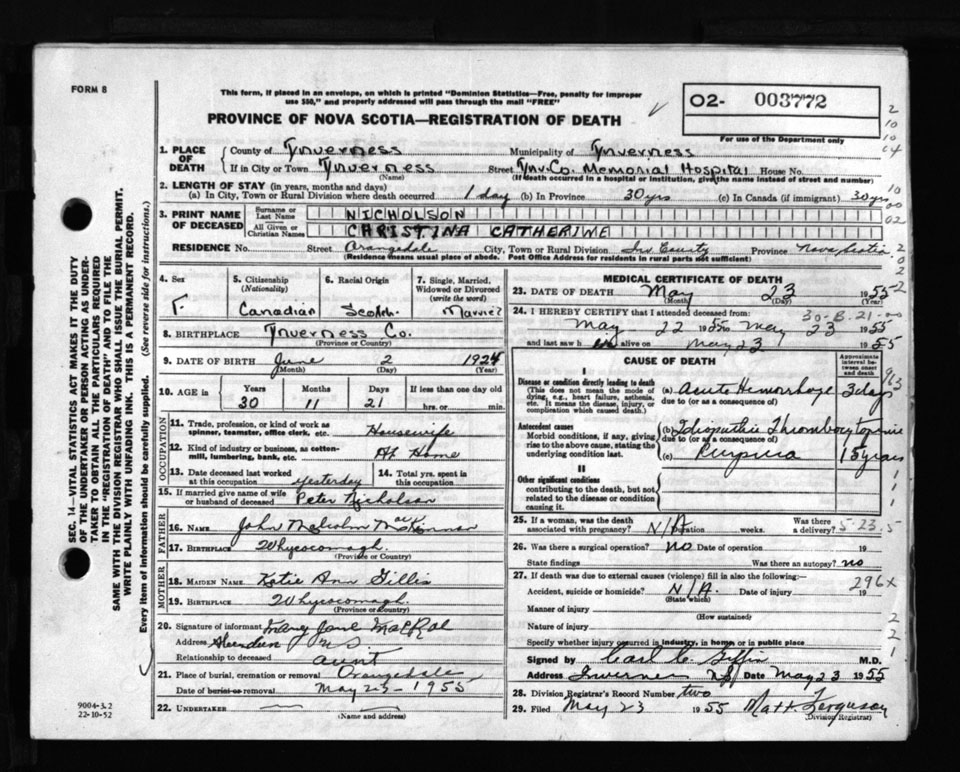 FORM 8
This form, if placed in an envelope, on which is printed "Dominion Statistics—Free, penalty for improper
use $50," and properly addressed will pass through the mail "FREE"
O2- 003772
For use of the Department only
PROVINCE OF NOVA SCOTIA—REGISTRATION OF DEATH
1. PLACE OF DEATH
County of Inverness Municipality of Inverness
If in City or Town Inverness Street Inv. Co. Memorial Hospital House No.
(Name) (If death occurred in a hospital or institution, give the name instead of street and number)
2. LENGTH OF STAY (in years, months and days)
(a) In City, Town or Rural Division where death occurred 1 day (b) In Province 30 yrs (c) In Canada (if immigrant) 30 yrs
3. PRINT NAME OF DECEASED
Surname or Last Name NICHOLSON
All Given or Christian Names CHRISTINA CATHERINE
RESIDENCE No. Street Orangedale City, Town or Rural Division Inv County Province Nova Scotia
(Residence means usual place of abode. Post Office Address for residents in rural parts not sufficient)
4. Sex F
5. Citizenship (Nationality) Canadian
6. Racial Origin Scotch
7. Single, Married, Widowed or Divorced (write the word) Married
8. BIRTHPLACE Inverness Co.
(Province or Country)
9. DATE OF BIRTH June 2 1924
(Month) (Day) (Year)
10. AGE in Years 30 Months 11 Days 21 If less than one day old hrs. or min.
OCCUPATION
11. Trade, profession, or kind of work as spinner, teamster, office clerk, etc. Housewife
12. Kind of industry or business, as cotton-mill, lumbering, bank, etc. At Home
13. Date deceased last worked at this occupation yesterday
14. Total yrs. spent in this occupation
15. If married give name of wife or husband of deceased Peter Nicholson
FATHER
16. NAME John Malcolm MacKinnon
17. BIRTHPLACE Whycocomagh
(Province or Country)
MOTHER
18. MAIDEN NAME Katie Ann Gillis
19. BIRTHPLACE Whycocomagh
(Province or Country)
20. Signature of informant Mary Jane MacRae
Address N S
Relationship to deceased aunt
21. Place of burial, cremation or removal Orangedale
Date of burial or removal May 25 - 1955
22. UNDERTAKER
(Name and address)
MEDICAL CERTIFICATE OF DEATH
23. DATE OF DEATH May 23 1955
(Month) (Day)
24. I HEREBY CERTIFY that I attended deceased from: 30-B.21-00
May 22 1955 to May 23 1955
and last saw h er alive on May 23 1955
CAUSE OF DEATH
Approximate interval between onset and death
I
Disease or condition directly leading to death
(This does not mean the mode of dying, e.g., heart failure, asthenia, etc. It means the disease, injury, or complication which caused death.)
(a) Acute Hemorrhage 3 days
due to (or as a consequence of)
Antecedent causes
Morbid conditions, if any, giving rise to the above cause, stating the underlying condition last.
(b) Idiopathic Thrombocytopenic
due to (or as a consequence of)
(c) Purpura 15 years
II
Other significant conditions
contributing to the death, but not related to the disease or condition causing it.
25. If a woman, was the death associated with pregnancy? N/A Duration weeks. Was there a delivery? 5-23.5
26. Was there a surgical operation? no Date of operation 19
State findings Was there an autopsy? no
27. If death was due to external causes (violence) fill in also the following:—
Accident, suicide or homicide? N/A. Date of injury 19
(State which) 296X
Manner of injury
(How sustained)
Nature of injury
Specify whether injury occurred in industry, in home or in public place
Signed by Carl C. Giffin M.D.
Address Inverness N.S. Date May 23 1955
28. Division Registrar's Record Number two
29. Filed May 23 1955 Matt. Ferguson
(Division Registrar)
SEC. 14—VITAL STATISTICS ACT MAKES IT THE DUTY
OF THE UNDERTAKER OR PERSON ACTING AS UNDER-
TAKER TO OBTAIN ALL THE PARTICULARS REQUIRED
IN THE "REGISTRATION OF DEATH" AND TO FILE THE
SAME WITH THE DIVISION REGISTRAR WHO SHALL ISSUE THE BURIAL PERMIT.
WRITE PLAINLY WITH UNFADING INK. THIS IS A PERMANENT RECORD.
Every item of information should be carefully supplied. (See reverse side for instructions.)
9004-3.2
22-10-52